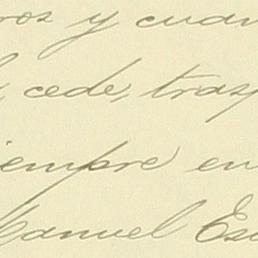 ros y cuan
cede, trasp
iempre en
Manuel Es